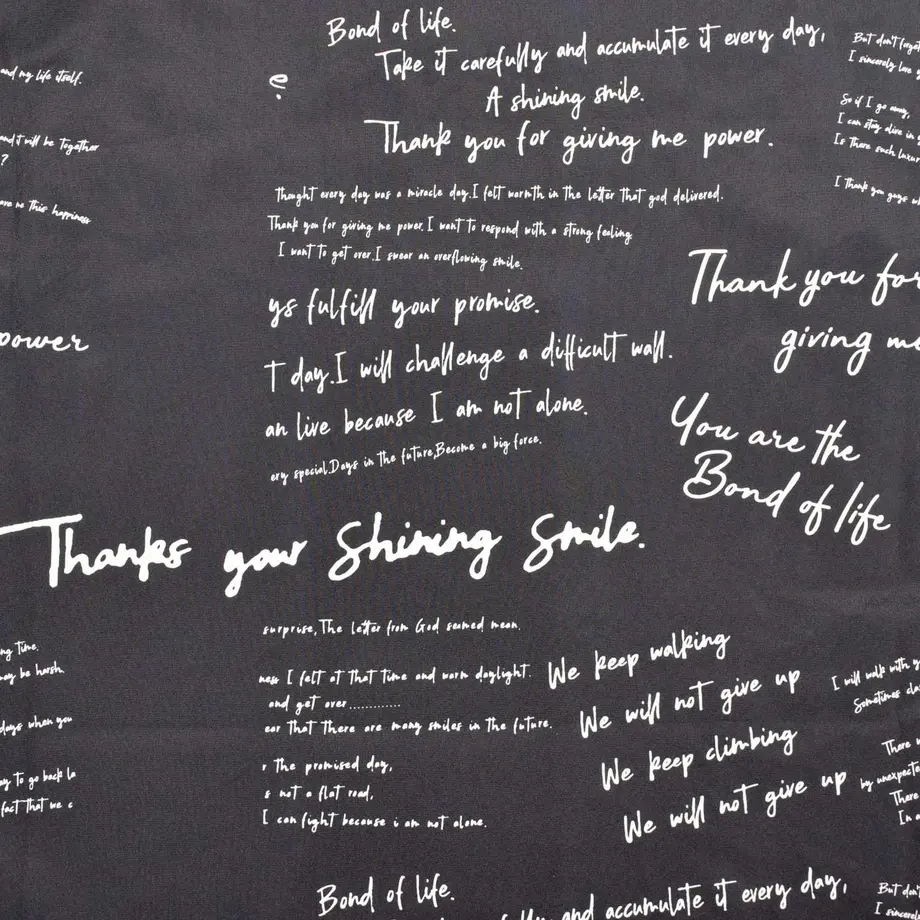 Bond of life.
Take it carefully and accumulate it every day,
A shining smile.
Thank you for giving me power.
and my life itself.
and I will be together
?
me this happiness
e.
But don't forget
I sincerely love
So if I go away,
I can stay alive in
Is there such luxur
I thank you guys
thought every day was a miracle day.I felt warmth in the letter that god delivered.
Thank you for giving me power.I want to respond with a strong feeling
I want to get over.I swear an overflowing smile.
ys fulfill your promise.
T day.I will challenge a difficult wall.
an live because I am not alone.
ery special.Days in the future,Become a big force.
power
Thank you for
giving me
You are the
Bond of life
Thanks your Shining Smile.
surprise,The letter from God seemed mean.
ness I felt at that time and warm daylight.
and get over............
ear that there are many smiles in the future.
r the promised day,
s not a flat road,
I can fight because i am not alone.
We keep walking
We will not give up
We keep climbing
We will not give up
ng time.
may be harsh.
days when you
ay to go back la
fact that we c
I will walk with y
Sometimes
There
by unexpecte
There
In a
Bond of life.
and accumulate it every day,
But don't
I sincerel